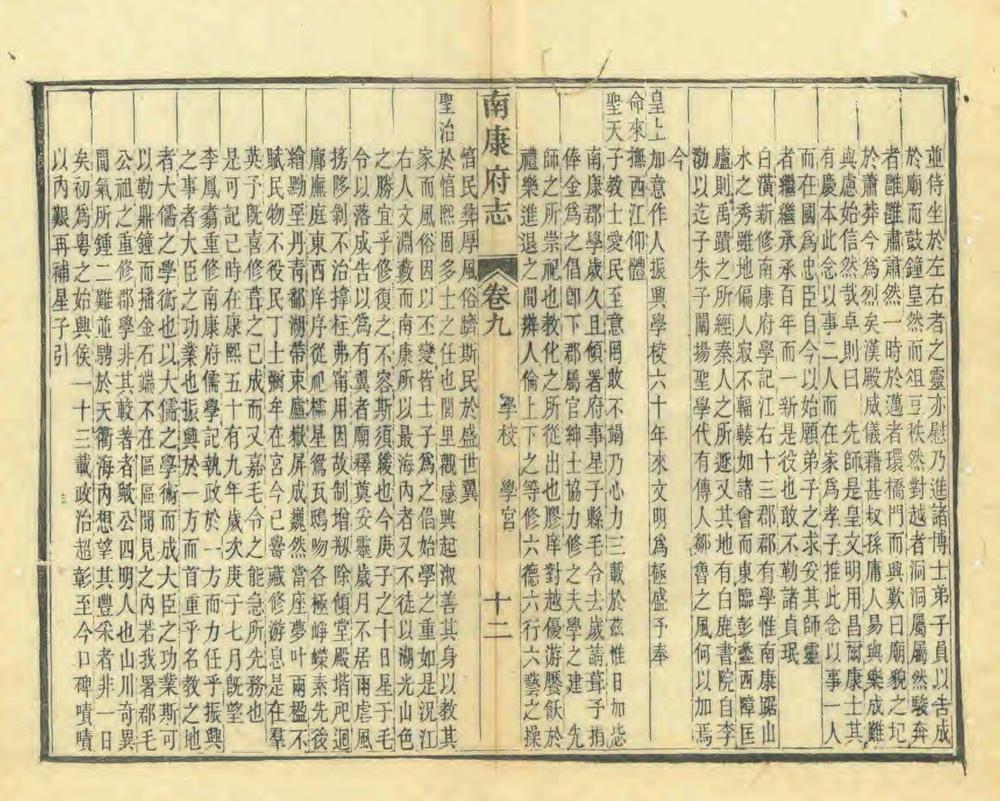 並侍坐於左右者之靈亦慰乃進諸博士弟子員以告成
於廟而鼓鐘皇然而俎豆秩然對越者洞洞屬屬然駿奔
者雝雝肅肅然一時於邁者環橋門而興歎曰廟貌之圮
於蕭莽今為烈矣漢殿威儀藉甚叔孫庸人易與樂成難
與慮始信然哉卓則曰　先師是皇文明用昌爾康士其
有慶本此念以事二人而在家為孝子推此念以事一人
而在國為忠臣自今以始願弟子之求妥其師靈
者繼繼承承百年而一新是役也敢不勒諸貞珉
白潢新修南康府學記江右十三郡郡有學惟南康踞山
水之秀雖地偏人寂不輻輳如諸會而東臨彭蠡西障匡
廬則禹蹟之所經秦人之所遯又其地有白鹿書院自李
渤以迄朱子闡揚聖學代有傳人鄒魯之風何以加焉
今
皇上加意作人振興學校六十年來文明為極盛予奉
命來撫西江仰體
聖天子教士愛民至意罔敢不竭乃心力三載於茲惟日加毖
南康郡學歲久且傾署府事星子縣毛令去歲請葺予捐
俸金為之倡卽下郡屬官紳士協力修之夫學之建　先
師之所崇祀也教化之所從出也膠庠對越優游饜飫於
禮樂進退之間辨人倫上下之等修六德六行六藝之操
南康府志　卷九　學校　學宮　十二
皆民彝厚風俗躋斯民於盛世翼
聖治於惟熙固多士之任也閭里觀感興起淑善其身以教其
家而風俗因以丕變皆士子為之倡始學之重如是況江
右人文淵藪而南康所以最海內者又不徒以湖光山色
之勝宜乎修復之不容斯須緩也今庚子之十日星子毛
令以落成告以為有翼者廊釋奠妥靈歲月不居雨虐風
搒陊剝不治撐柱弗甯用因故制增剏除傾堂殿堦戺迴
廊廡庭東西庠序從祀櫺星鴛瓦鴟吻各極崢嶸素先後
繪黝堊丹青鄱湖帶束廬嶽屏成巍然當座夢叶兩楹不
賦民物不役民丁士斵年在宮今已魯藏修游息是在羣
英予旣喜修葺之已成而又嘉毛令之能急所先務也
是可記已時在康熙五十有九年歲次庚子七月旣望
李鳳翥重修南康府儒學記執政於一方而力任乎振興
之事者大臣之功業也振興於一方而首重乎名教之地
者大儒之學術也以大儒之學術而成大臣之功業斯可
以勒鼎鐘而播金石端不在區區聞見之內若我署郡毛
公祖之重修郡學非其較著者歟公四明人也山川奇異
間氣所鍾二難並騁於天衢海內想望其豐采者非一日
矣初為粵之始興侯一十三載政治超彰至今口碑嘖嘖
以內艱再補星子引